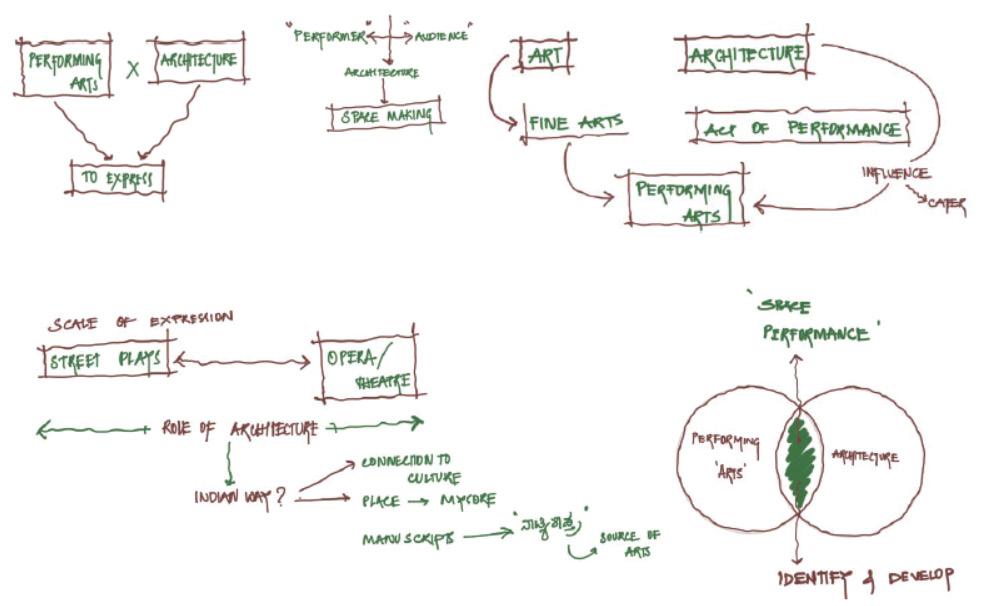 PERFORMING
ARTS
X
ARCHITECTURE
TO EXPRESS
"PERFORMER"
"AUDIENCE"
ARCHITECTURE
SPACE MAKING
ART
FINE ARTS
PERFORMING
ARTS
ARCHITECTURE
ACT OF PERFORMANCE
INFLUENCE
CATER
SCALE OF EXPRESSION
STREET PLAYS
OPERA/
THEATRE
ROLE OF ARCHITECTURE
INDIAN WAY?
CONNECTION TO
CULTURE
PLACE → MYSORE
MANUSCRIPTS →
SOURCE OF
ARTS
'SPACE
PERFORMANCE'
PERFORMING
'ARTS'
ARCHITECTURE
IDENTIFY & DEVELOP